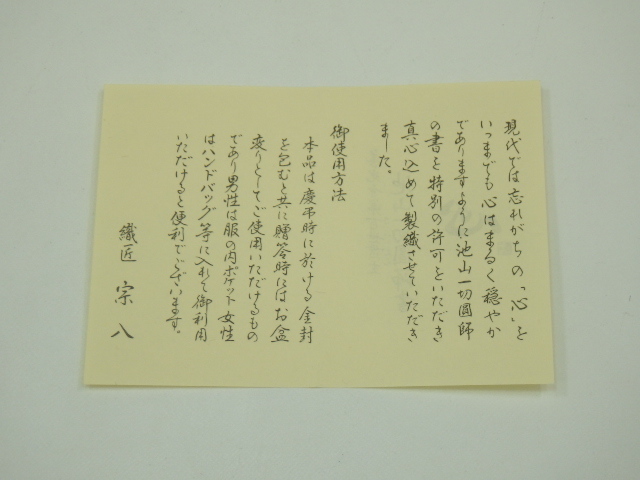 現代では忘れがちの「心」を
いつまでも心はまるく穏やか
でありますように池山一切圓師
の書を特別の許可をいただき
真心込めて製織させていただき
ました。
御使用方法
本品は慶弔時に於ける金封
を包むと共に贈答時にはお盆
変りとしてご使用いただけるもの
であり男性は服の内ポケット女性
はハンドバッグ等に入れて御利用
いただけると便利でございます。
織匠 宗八